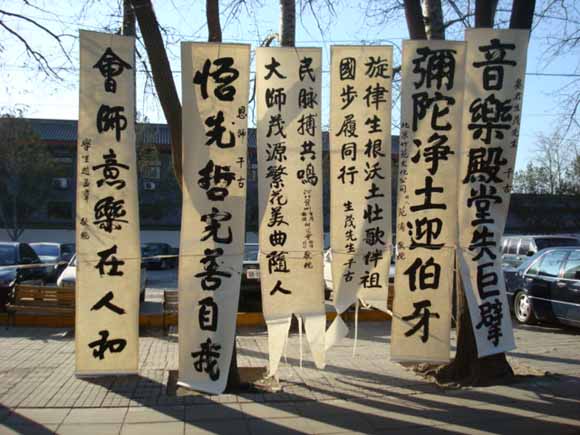 音樂殿堂失巨擘
生茂先生千古
彌陀净土迎伯牙
敬挽
旋律生根沃土壮歌伴祖
國步履同行
生茂先生千古
大師茂源繁花美曲随人
民脉搏共鳴
敬挽
悟先哲完善自我
恩師千古
會師意樂在人和
敬挽